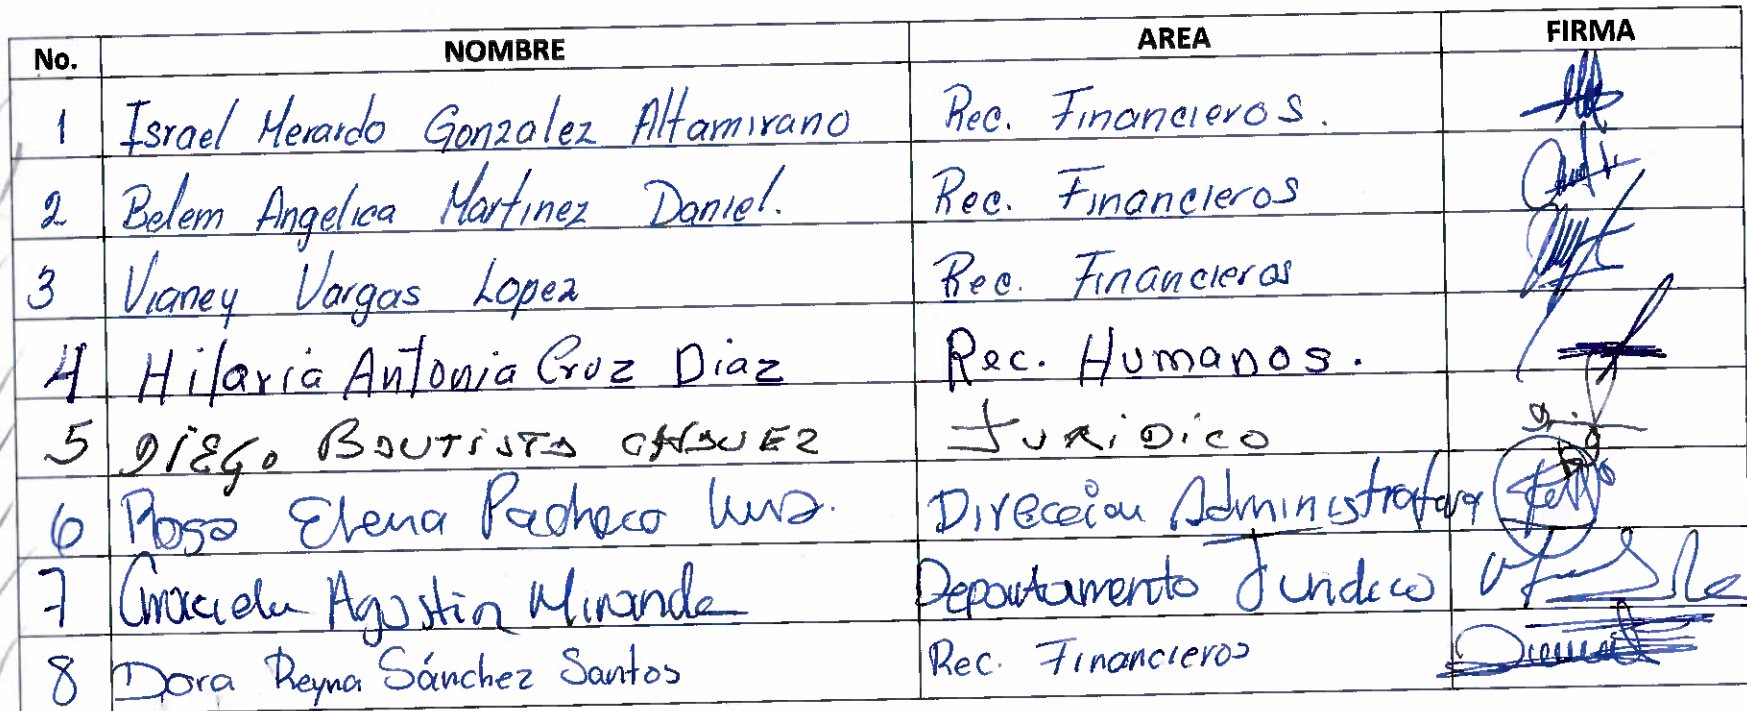 No. NOMBRE AREA FIRMA
1 Israel Merardo Gonzalez Altamirano Rec. Financieros.
2 Belem Angelica Martinez Daniel. Rec. Financieros
3 Vianey Vargas Lopez Rec. Financieros
4 Hilaria Antonia Cruz Diaz Rec. Humanos.
5 DIEGO BAUTISTA CHAVEZ JURIDICO
6 Rosa Elena Pacheco Direccion Administrativa
7 Graciela Agustin Miranda Departamento Juridico
8 Dora Reyna Sánchez Santos Rec. Financieros